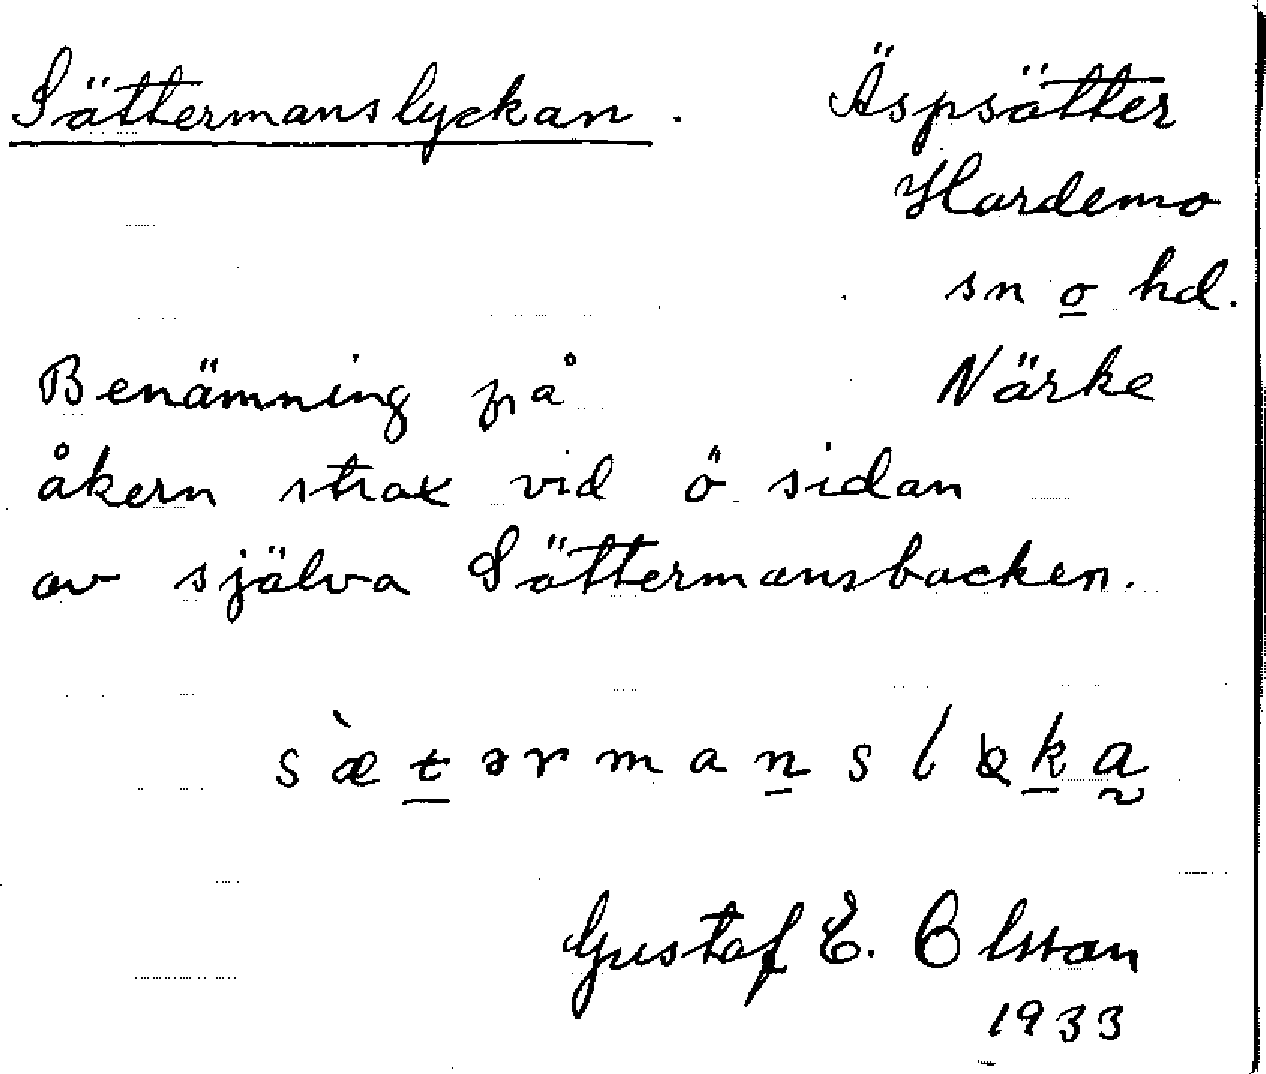 Sättermanslyckan. Äspsätter
Hardemo
sn o hd.
Benämning på Närke
åkern strax vid ö sidan
av själva Sättermansbacken.
sæ̀tərmansl kа
Gustaf E. Olsson
1933